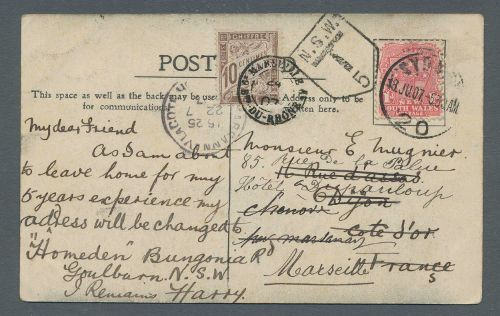 POST
This space as well as the back may be used
for communication.
Address only to be
written here.
My dear Friend
As I am about
to leave home for my
5 years experience my
adress will be changed to
"Homeden" Bungonia Rd
Goulburn. N.S.W
I Remains Harry.
Monsieur E Mugnier
85. Rue De La
Hôtel Dupanloup
Chenôve Dijon
Côte d'or
Marseille France
CHIFFRE
10 CENTIMES
MARSEILLE
BOUCHES-DU-RHONE
N.S.W.
15
SYDNEY
JU 07
20
NEW
SOUTH WALES
POSTAGE
16 25
22 7